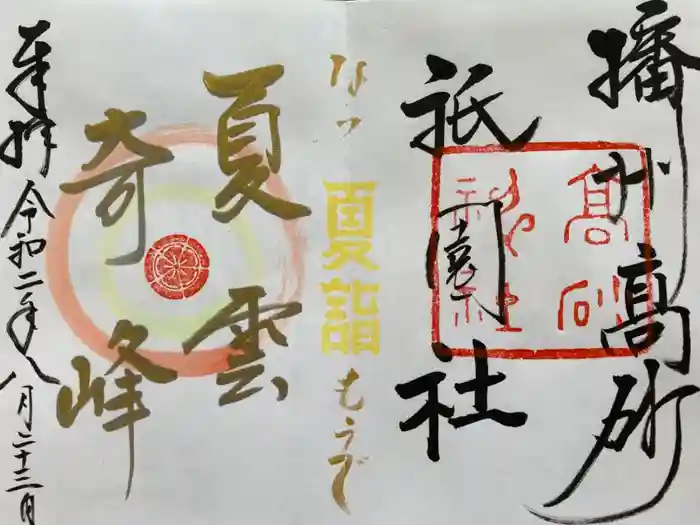 播州高砂
祇園社
高砂
神社
なつ
夏詣
もうで
夏雲
奇峰
奉拝
令和二年八月二十三日